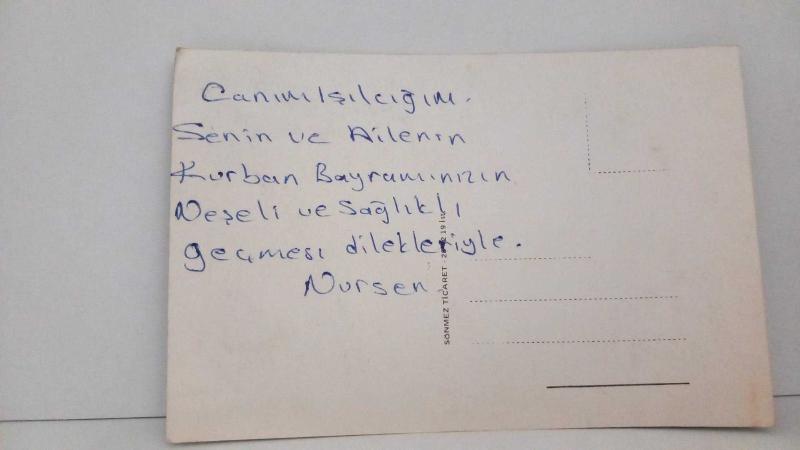 Canım Işılcığım.
Senin ve Ailenin
Kurban Bayramınızın
Neşeli ve Sağlıklı
geçmesi dilekleriyle.
Nursen
SÖNMEZ TİCARET